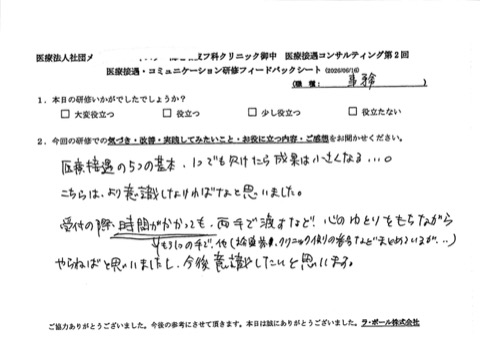 医療法人社団メ フ科クリニック御中 医療接遇コンサルティング第2回
医療接遇・コミュニケーション研修フィードバックシート(2026/06/16)
(職種: 事務 )
1.本日の研修いかがでしたでしょうか?
□ 大変役立つ □ 役立つ □ 少し役立つ □ 役立たない
2.今回の研修での気づき・改善・実践してみたいこと・お役に立つ内容・ご感想をお聞かせください。
医療接遇の5つの基本、1つでも欠けたら成果は小さくなる...。
こちらは、より意識しなければなと思いました。
受付の際、時間がかかっても、両手で渡すなど、心のゆとりをもちながら
もう1つの手で、他(診察券、クリニック便りの番号などまとめているが...)
やらねばと思いましたし、今後意識したいと思います。
ご協力ありがとうございました。今後の参考にさせて頂きます。本日は誠にありがとうございました。ラ・ポール株式会社